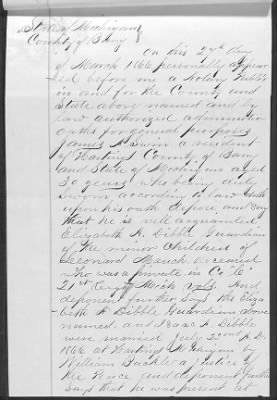 State of Michigan
County of Barry
On this 27th day
of March 1866 personally appear
ed before me a Notary Public
in and for the County and
State above named and by
law authorized administer
oaths for general purposes
James A. a resident
of Hastings County of Barry
and State of Michigan aged
30 years who being duly
sworn according to law doth
upon his oath depose and say
that he is well acquainted
Elizabeth A. Dibble Guardian
of the minor Children of
Leonard deceased
who was a private in Co "C"
21st Mich Vols. And
deponent further says the Eliza
-beth A Dibble Guardian above
named and Isaac A. Dibble
were married July 22nd A.D.
1866 at Hastings Michigan by
William a Justice of
the Peace and deponent further
says that he was present at